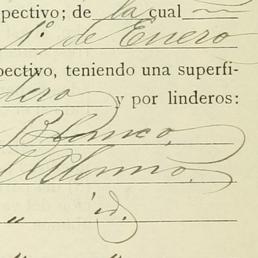 pectivo; de la cual
1º de Enero
pectivo, teniendo una superfi-
dero y por linderos:
Blanco,
Alamo,
„ id.